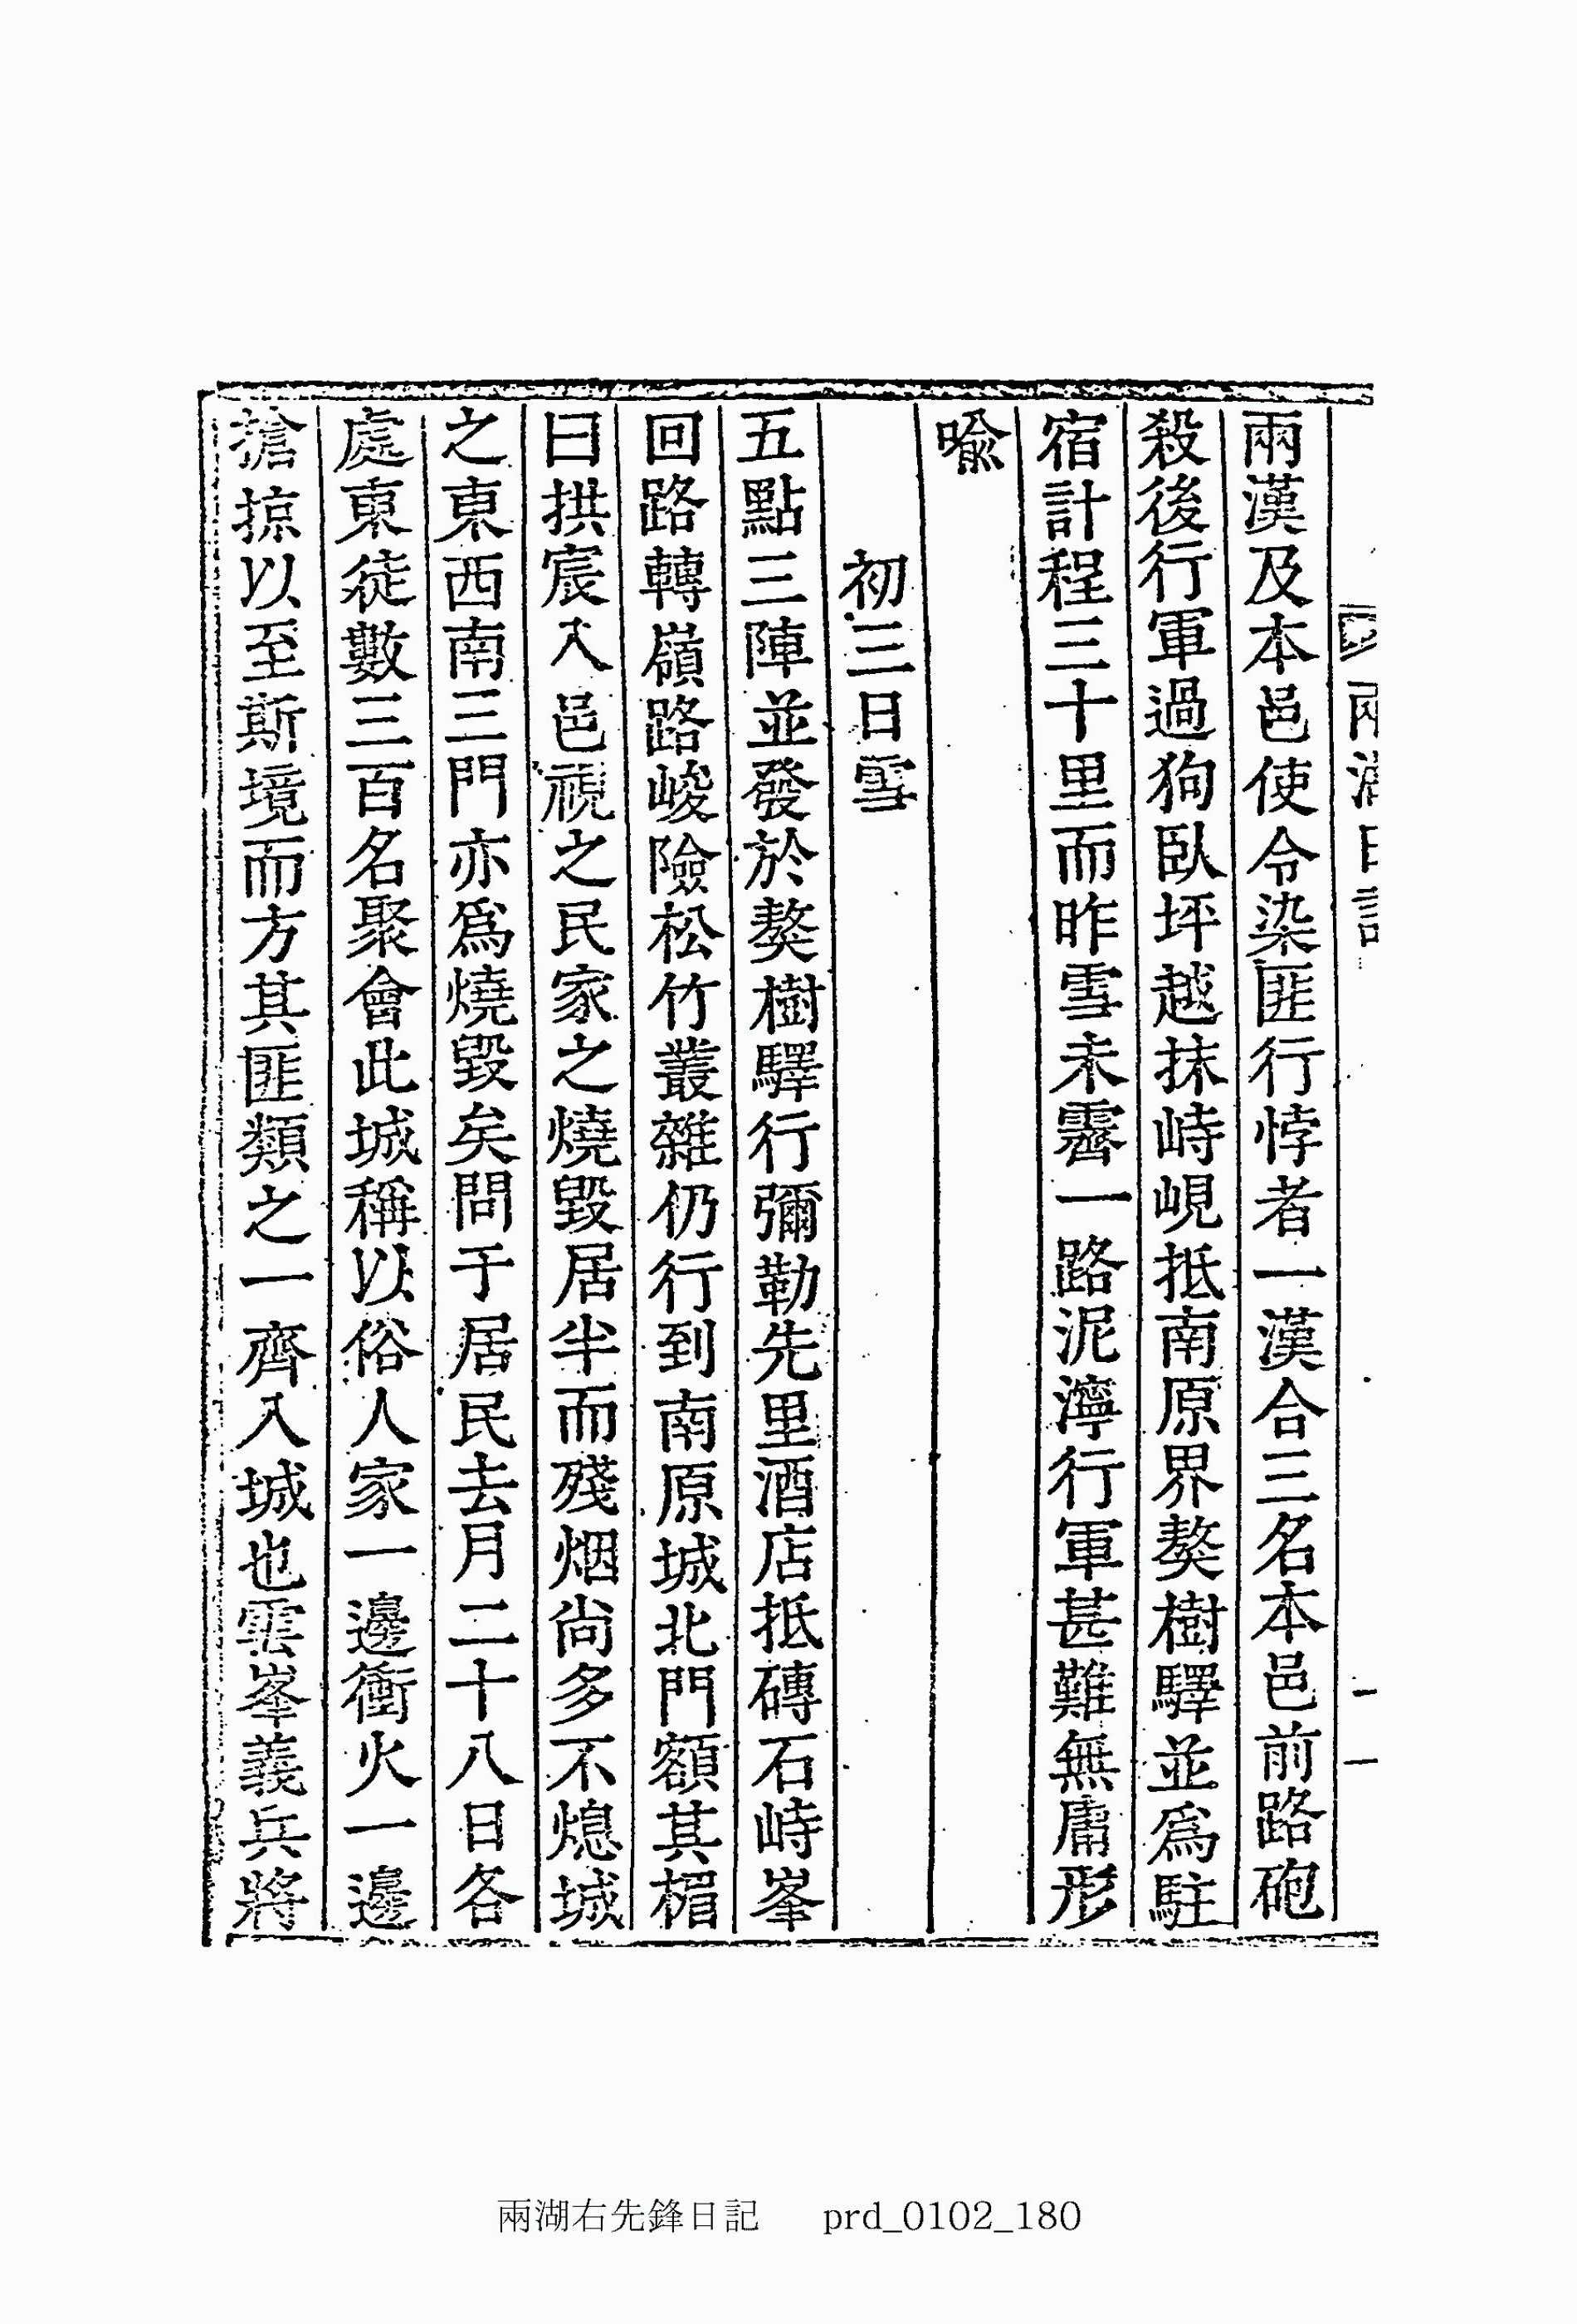 兩湖日記
一一
兩漢及本邑使令染匪行悖者一漢合三名本邑前路砲
殺後行軍過狗臥坪越抹峙峴抵南原界獒樹驛並爲駐
宿計程三十里而昨雪未霽一路泥濘行軍甚難無庸形
喩
初三日雪
五點三陣並發於獒樹驛行彌勒先里酒店抵磚石峙峯
回路轉嶺路峻險松竹叢雜仍行到南原城北門額其楣
曰拱宸入邑視之民家之燒毀居半而殘烟尙多不熄城
之東西南三門亦爲燒毀矣問于居民去月二十八日各
處東徒數三百名聚會此城稱以俗人家一邊衝火一邊
搶掠以至斯境而方其匪類之一齊入城也雲峯義兵將
兩湖右先鋒日記 prd_0102_180